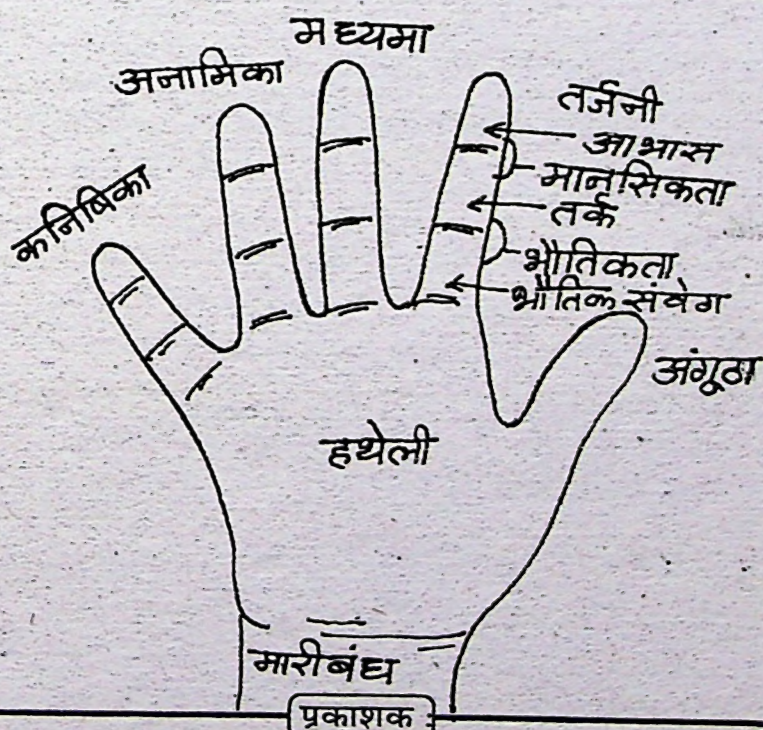 मध्यमा
अनामिका
तर्जनी
आभास
मानसिकता
कनिषिका
तर्क
भौतिकता
भौतिक संवेग
अंगूठा
हथेली
मारीबंध
प्रकाशक